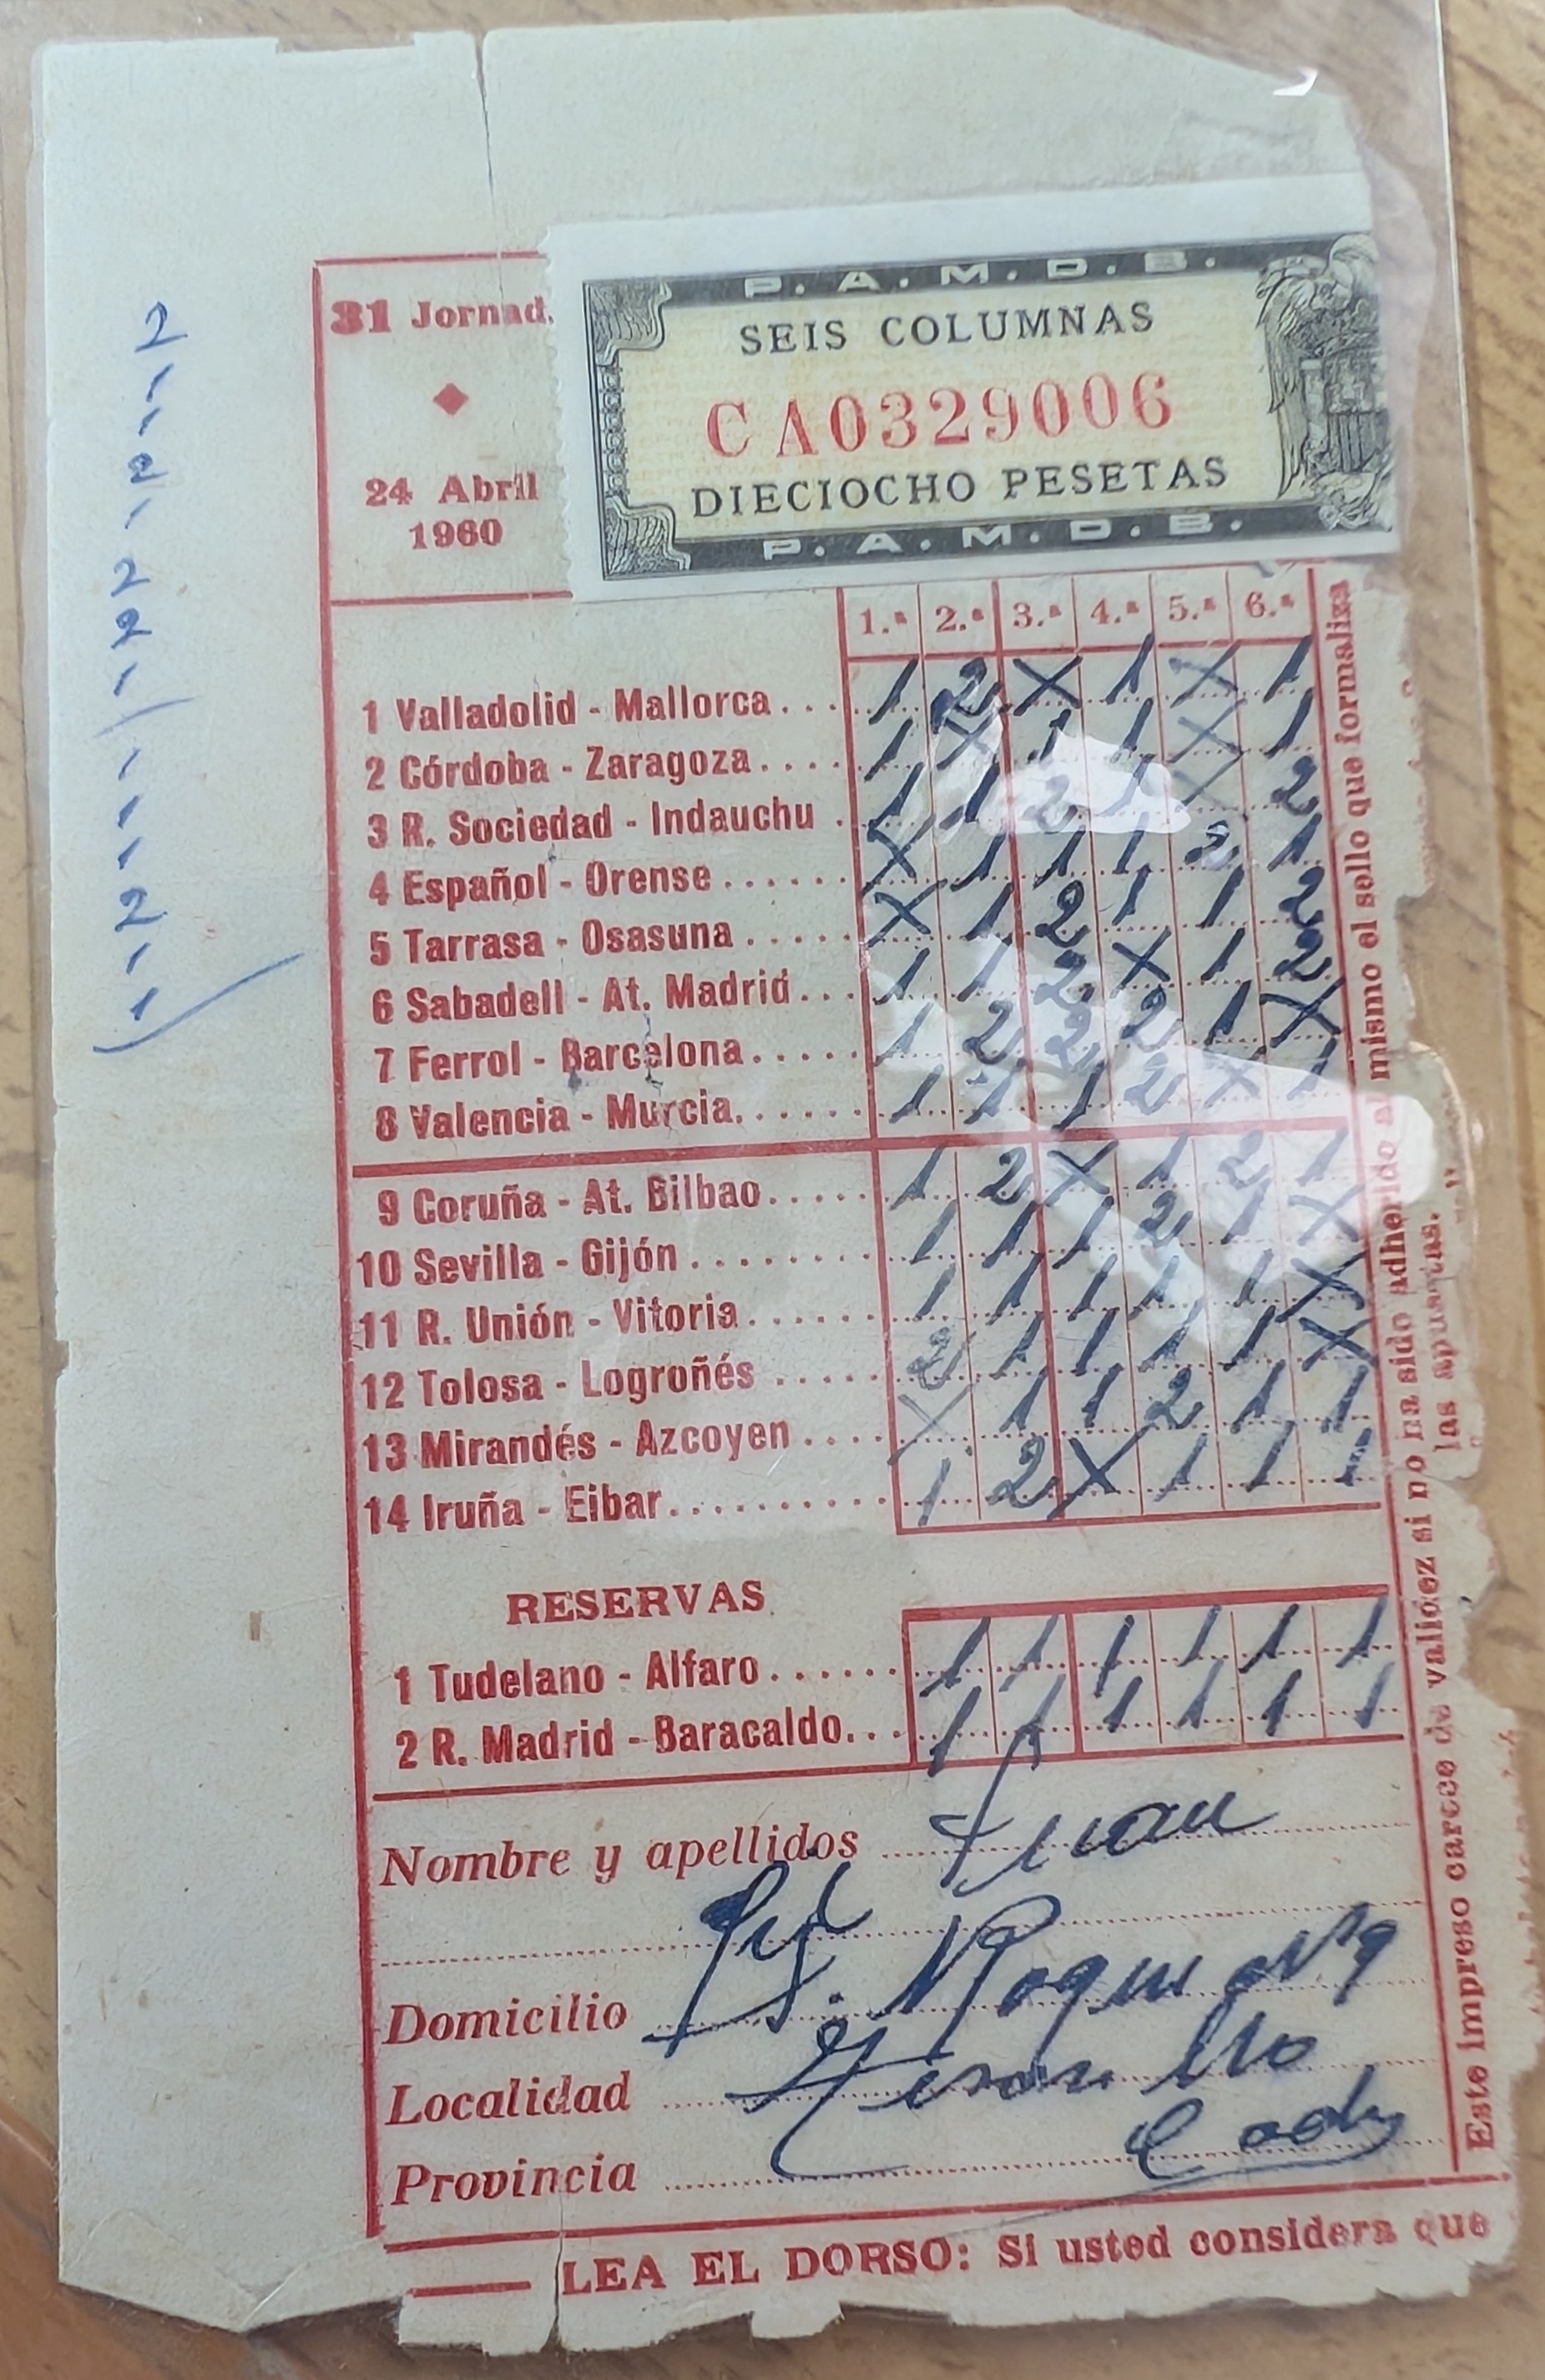 P. A. M. D. B.
SEIS COLUMNAS
CA0329006
DIECIOCHO PESETAS
P. A. M. D. B.
31 Jornad.
24 Abril
1960
1.ª 2.ª 3.ª 4.ª 5.ª 6.ª
1 Valladolid - Mallorca... 1 2 X 1 X 1
2 Córdoba - Zaragoza.... 1 X 1 1 X 1
3 R. Sociedad - Indauchu . 1 1 2 1 2
4 Español - Orense...... X 1 1 1 2 1
5 Tarrasa - Osasuna..... X 1 2 1 1 2
6 Sabadell - At. Madrid... 1 1 2 X 1 2
7 Ferrol - Barcelona..... 1 2 2 2 1 X
8 Valencia - Murcia...... 1 1 1 2 X 1
9 Coruña - At. Bilbao..... 1 2 X 1 2 1
10 Sevilla - Gijón........ 1 1 1 2 1 X
11 R. Unión - Vitoria...... 1 1 1 1 1 X
12 Tolosa - Logroñés ..... 2 1 1 1 1 X
13 Mirandés - Azcoyen.... X 1 1 2 1 1
14 Iruña - Eibar.......... 1 2 X 1 1 1
RESERVAS
1 Tudelano - Alfaro...... 1 1 1 1 1 1
2 R. Madrid - Baracaldo... 1 1 1 1 1 1
Nombre y apellidos Juan
Gil
Domicilio S. Roque Nº 9
Localidad
Provincia Cadiz
LEA EL DORSO: Si usted considera que
Este impreso carece de validez si no ha sido adherido al mismo el sello que formaliza
las apuestas.